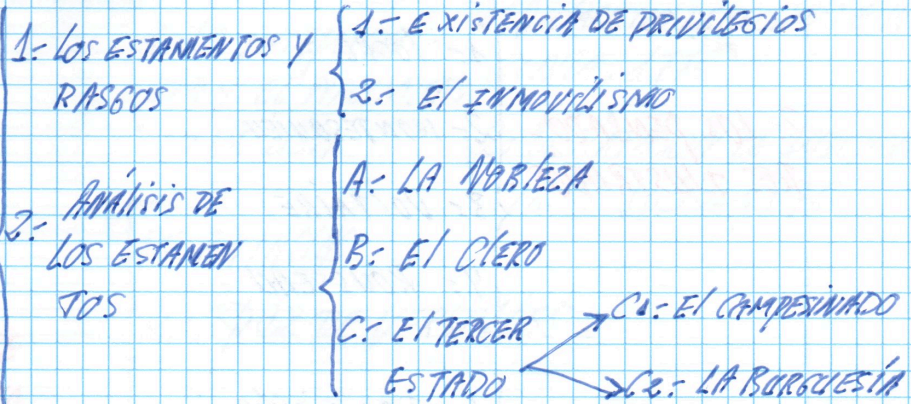 1:- LOS ESTAMENTOS Y
RASGOS
1:- EXISTENCIA DE PRIVILEGIOS
2:- El INMOVILISMO
2:- ANÁLISIS DE
LOS ESTAMEN
TOS
A:- LA NOBLEZA
B:- El CLERO
C:- El TERCER
ESTADO
C1:- El CAMPESINADO
C2:- LA BURGUESÍA